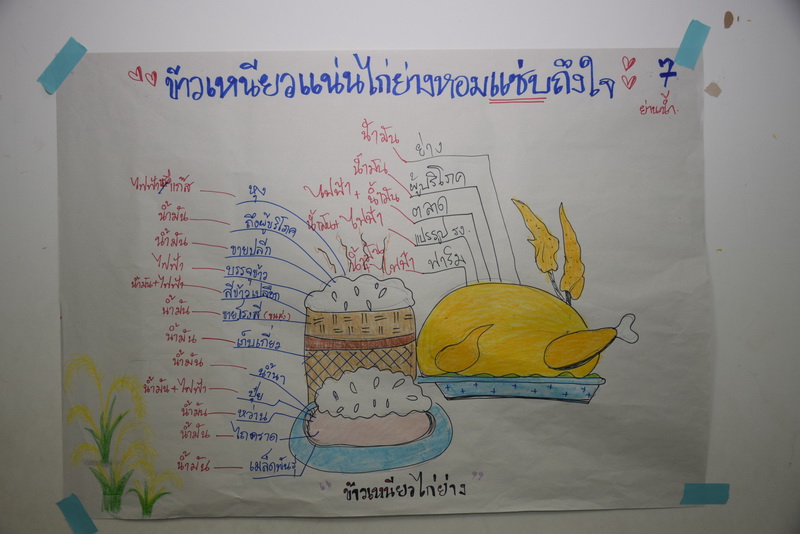 ข้าวเหนียวแน่นไก่ย่างหอมแซ่บถึงใจ
7
ย่านน้ำ
น้ำมัน ย่าง
น้ำมัน ผู้บริโภค
ไฟฟ้า + น้ำมัน ตลาด
น้ำมัน+ ไฟฟ้า แปรรูป รง.
ไฟฟ้า ฟาร์ม
แก๊ส หุง
น้ำมัน ถึงผู้บริโภค
น้ำมัน ขายปลีก
ไฟฟ้า บรรจุข้าว
น้ำมัน+ไฟฟ้า สีข้าวเปลือก
น้ำมัน ขายโรงสี (ขนส่ง)
น้ำมัน เก็บเกี่ยว
น้ำมัน
น้ำมัน+ไฟฟ้า ปุ๋ย
น้ำมัน หว่าน
น้ำมัน ไถคราด
น้ำมัน เมล็ดพันธุ์
"ข้าวเหนียวไก่ย่าง"